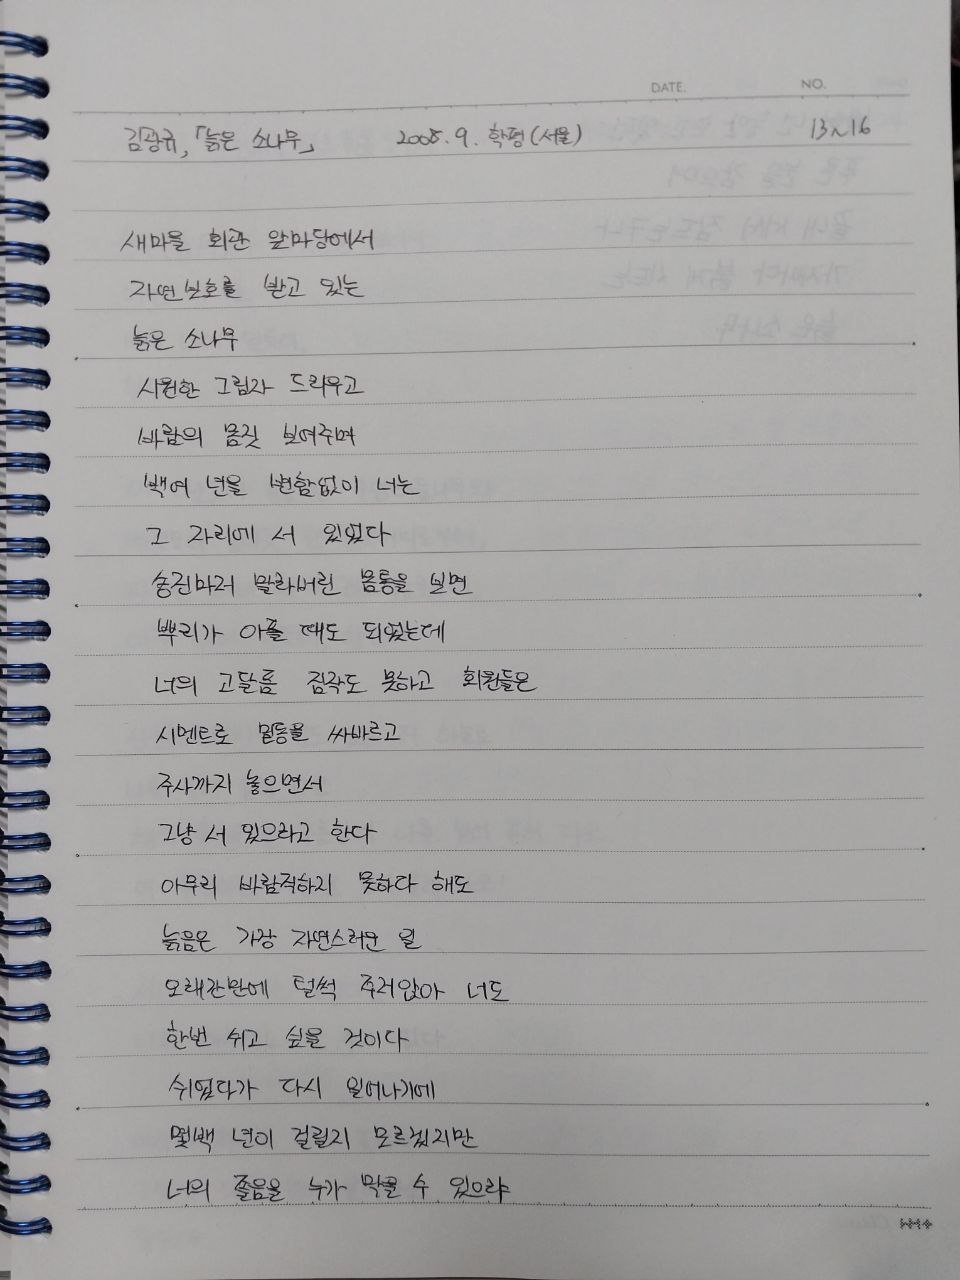 DATE. NO.
김광규, 「늙은 소나무」 2005.9. 학평(서울) 13~16
새마을 회관 앞마당에서
자연보호를 받고 있는
늙은 소나무
시원한 그림자 드리우고
바람의 몸짓 보여주며
백여 년을 변함없이 너는
그 자리에 서 있었다
송진마저 말라버린 몸통을 보면
뿌리가 아플 때도 되었는데
너의 고달픔 짐작도 못하고 회원들은
시멘트로 밑동을 싸바르고
주사까지 놓으면서
그냥 서 있으라고 한다
아무리 바람직하지 못하다 해도
늙음은 가장 자연스러운 일
오래간만에 털썩 주저앉아 너도
한번 쉬고 싶을 것이다
쉬었다가 다시 일어나기에
몇백 년이 걸릴지 모르겠지만
너의 졸음을 누가 막을 수 있으랴